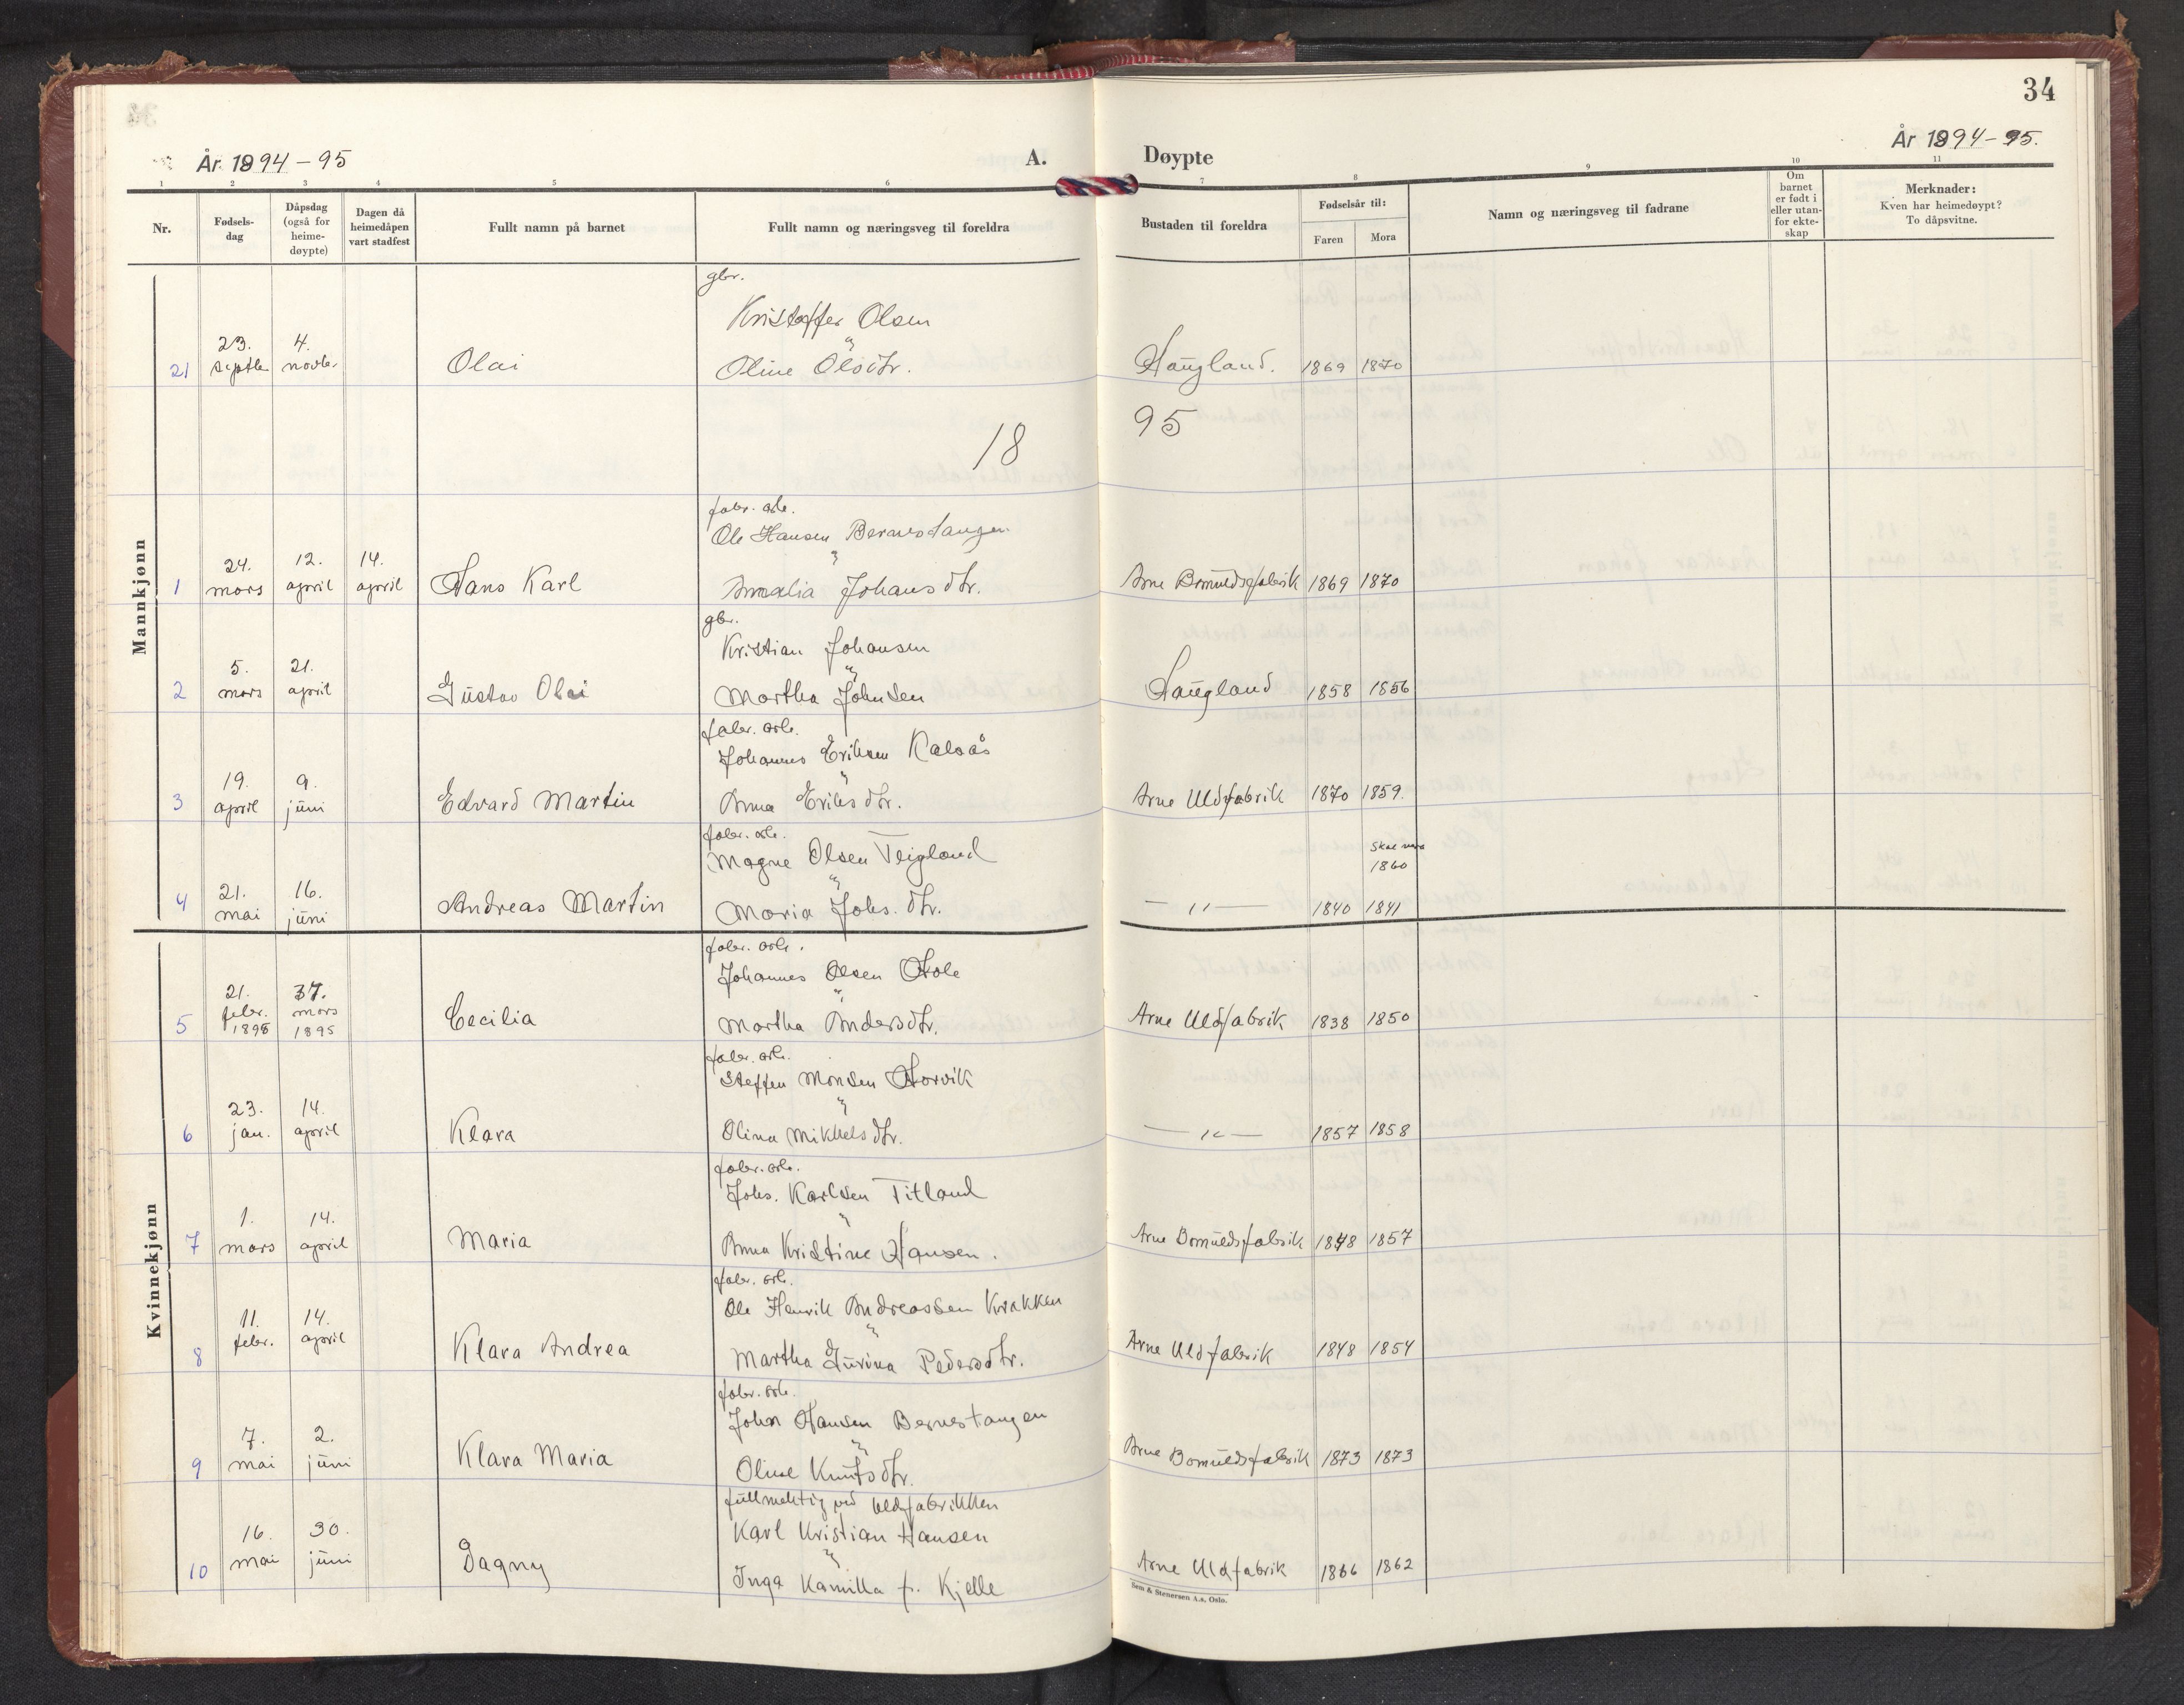 34
År 1894-95
A.
Døypte
År 1894-95.
1 2 3 4 5 6 7 8 9 10 11
Nr.
Fødsels-
dag
Dåpsdag
(også for
heime-
døypte)
Dagen då
heimedåpen
vart stadfest
Fullt namn på barnet
Fullt namn og næringsveg til foreldra
Bustaden til foreldra
Fødselsår til:
Faren
Mora
Namn og næringsveg til fadrane
Om
barnet
er født i
eller utan-
for ekte-
skap
Merknader:
Kven har heimedøypt?
To dåpsvitne.
Mankjønn
gbr.
Kristoffer Olsen
23. 4.
21 septbr novbr Olai Oline Olsdtr. Haugland. 1869 1870
18 95
fabr. arb.
Ole Hansen Bernestangen
24. 12. 14.
1 mars april april Hans Karl Amalia Johansdtr. Arne Bomuldsfabrik 1869 1870
gbr.
Kristian Johansen
5. 21.
2 mars april Gustav Olai Martha Johnsen Haugland 1858 1856
fabr. arb.
Johannes Eriksen Kalvås
19. 9.
3 april juni Edvard Martin Anna Eriksdtr. Arne Uldfabrik 1870 1859.
fabr. arb.
Magne Olsen Teigland
skal vera
1860
21. 16.
4 mai juni Andreas Martin Maria Johs. dtr. — " — 1840 1841
Kvinnekjønn
fabr. arb.
Johannes Olsen Hole
21. 37.
febr. mars
5 1895 1895 Cecilia Martha Andersdtr. Arne Uldfabrik 1838 1850
fabr. arb.
Steffen Monsen Horvik
23. 14.
6 jan. april Klara Olina Mikkelsdtr. — " — 1857 1858
fabr. arb.
Johs. Karlsen Titland
1. 14.
7 mars april Maria Anna Kristine Hansen. Arne Bomuldsfabrik 1848 1857
fabr. arb.
Ole Henrik Andreassen Kvakken
11. 14.
8 febr. april Klara Andrea Martha Gurina Pedersdtr. Arne Uldfabrik 1848 1854
fabr. arb.
John Hansen Bernestangen
7. 2.
9 mai juni Klara Maria Oline Knutsdtr. Arne Bomuldsfabrik 1873 1873
fullmektig ved Uldfabrikken
Karl Kristian Hansen
16. 30.
10 mai juni Dagny Inga Kamilla f. Kjelle Arne Uldfabrik 1866 1862
Sem & Stenersen A.s, Oslo.